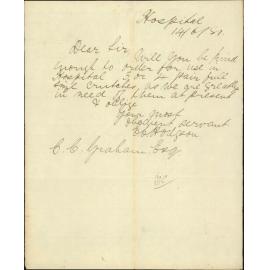 Hospital
14/6/81
Dear Sir Will You be kind
enough to order for use in
Hospital 3 or 4 pair full
size crutches, as we are greatly
in need of them at present
& oblige
Your most
obedient servant
Hodgson
C. C. Graham Esq